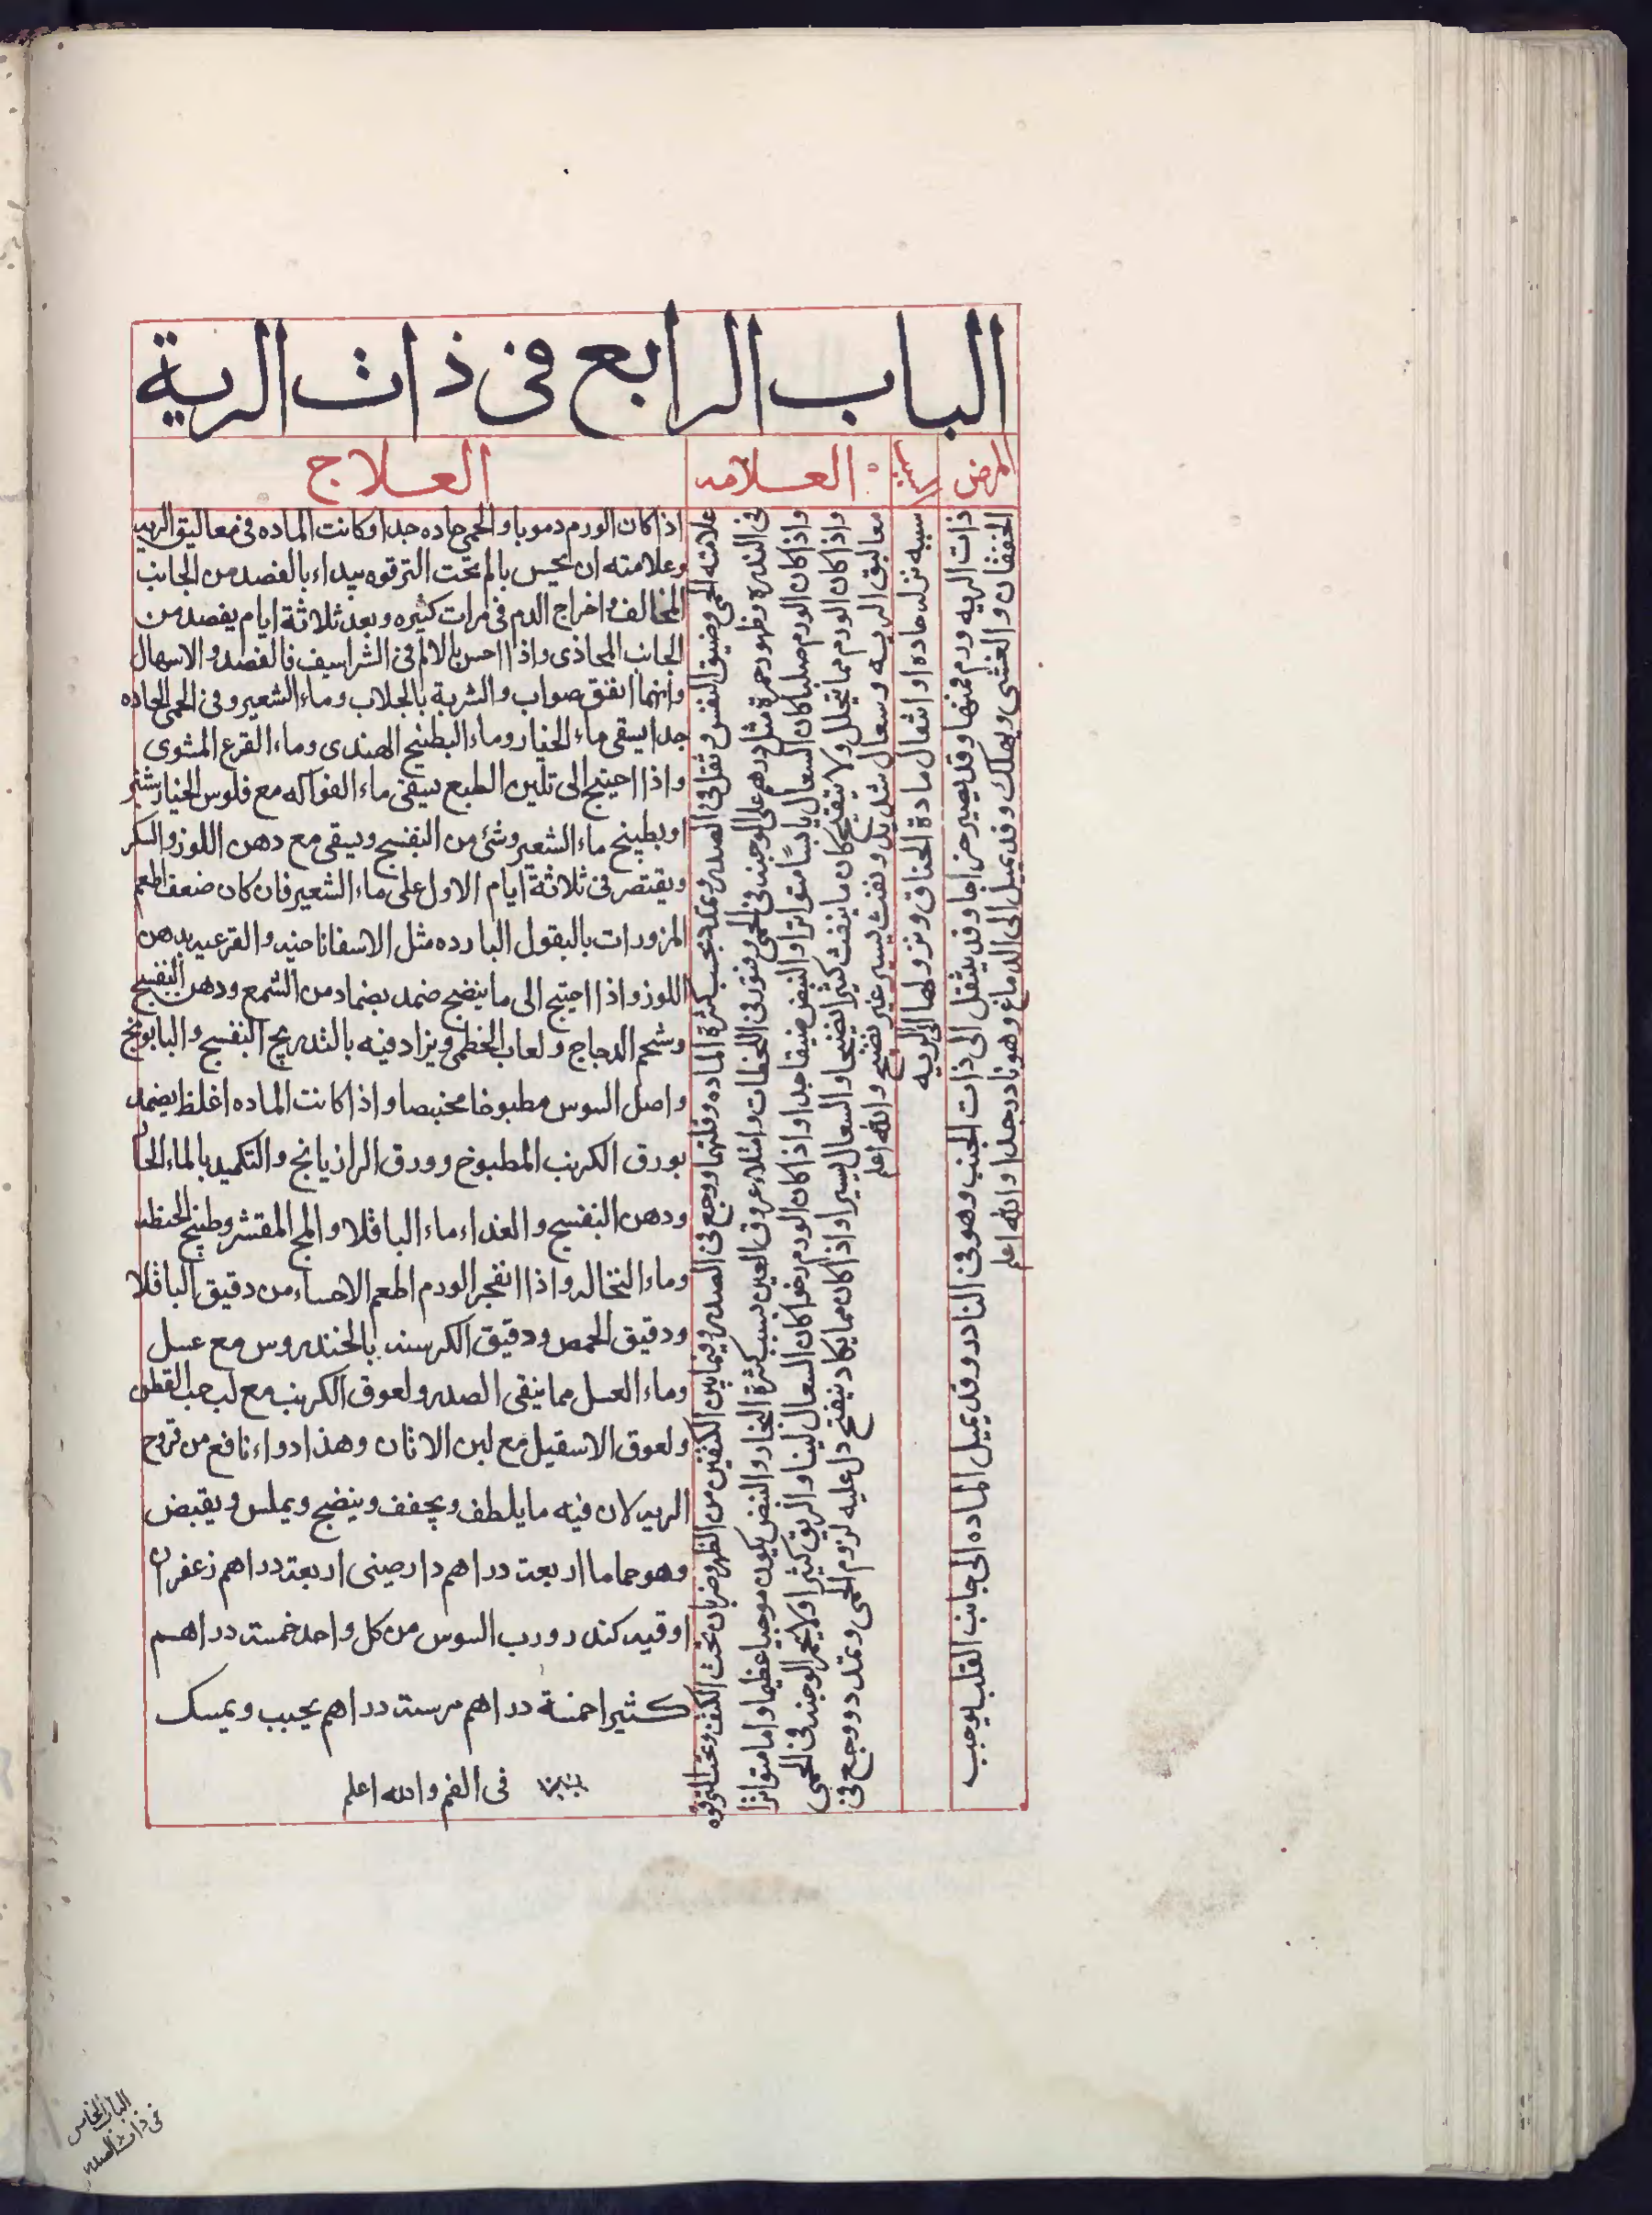 الباب الرابع فى ذات الرية
المرض
سببه
العلامه
العلاج
ذات الريه ورم فمنها وقد يصير خراجا وقد ينتقل الى ذات الجنب وهو فى النادر وقد يميل الماده الى جانب القلب يوجب
الخفقان والغشى ويهلك وقد يميل الى الدماغ وهو نادر جدا والله اعلم
سببه نزله حاده او انتقال مادة الخناق ونزولها الى الريه
علامته الحمى وضيق النفس وثقل فى الصدر وتمدد بحسب كثرة الماده وقلتها ووجع فى الصدر وفيما بين الكتفين من الظهر وضربان تحت الكتف وتحت الترقوه
فى الندره وظهور حمرة مثل درهم على الوجنه فى الحمى وفتور فى اللحظات وامتلاء عروق العين بسبب كثرة البخار والنبض يكون موجيا عظيما واما متواترا
واذا كان الورم صلبا كان السعال يابسًا متواترا والنبض ضيقا جدا واذا كان الورم رخوا كان السعال لينا والريق كثيرا ولا يحمر الوجنه فى الحمى
واذا كان الورم مما يتحلل ولا يتقيح كان ما ينفث كثيرا نضيجا والسعال يسيرا واذا كان مما يكاد ينفتح دل عليه لزوم الحمى وتمدد ووجع فى
معاليق الريه وسعال شديد ونفث يسير غير نضيج والله اعلم
اذا كان الورم دمويا والحمى حاده جدا وكانت الماده فى معاليق الريه
وعلامته ان يحس بالم تحت الترقوه يبداء بالفصد من الجانب
المخالف واخراج الدم فى مرات كثيره وبعد ثلاثة ايام يفصد من
الجانب المحاذى واذا احس بالالم فى الشراسيف فالفصد والاسهال
وايهما اتفق صواب والشربة بالجلاب وماء الشعير وفى الحمى الحاده
جدا يسقى ماء الخيار وماء البطيخ الهندى وماء القرع المشوى
واذا احتيج الى تليين الطبع يسقى ماء الفواكه مع فلوس الخيار شنبر
او بطبيخ ماء الشعير وشئ من البنفسج ويسقى مع دهن اللوز والسكر
ويقتصر فى ثلاثة ايام الاول على ماء الشعير فان كان ضعف اطعم
المزورات بالبقول البارده مثل الاسفاناخيه والقرعيه بدهن
اللوز واذا احتيج الى ما ينضج ضمد بضماد من الشمع ودهن البنفسج
وشحم الدجاج ولعاب الخطمى ويزاد فيه بالتدريج البنفسج والبابونج
واصل السوس مطبوخا مخبصا واذا كانت الماده اغلظ يضمد
بورق الكرنب المطبوخ وورق الرازيانج والتكميد بالماء الحار
ودهن البنفسج والغداء ماء الباقلا والمج المقتشر وطبيخ الحنطه
وماء النخاله واذا انفجر الورم اطعم الاحساء من دقيق الباقلا
ودقيق الحمص ودقيق الكرسنه بالخندروس مع عسل
وماء العسل مما ينقى الصدر ولعوق الكرنب مع لب حب القطن
ولعوق الاسقيل مع لبن الاتان وهذا دواء نافع من قروح
الريه لان فيه ما يلطف ويجفف وينضج ويملس ويقبض
وهو حماما اربعة دراهم دارصينى اربعة دراهم زعفران
اوقيه كندر ورب السوس من كل واحد خمسة دراهم
كثيرا خمسة دراهم مر ستة دراهم يحبب ويمسك
فى الفم والله اعلم
الباب الخامس
فى ذات الصدر